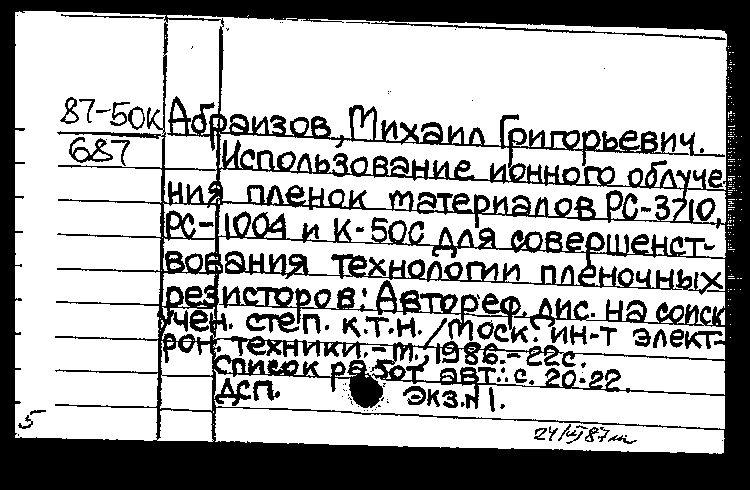 87-50к Абраизов, Михаил Григорьевич.
687 Использование ионного облуче
ния пленок материалов РС-3710,
РС-1004 и К-50С для совершенст-
вования технологии пленочных
резисторов: Автореф. дис. на соиск
учен. степ. к.т.н. /Моск. ин-т элект-
рон. техники.-м., 1986.-22с.
Список работ авт.: с. 20-22.
ДСП. Экз.N1.
5